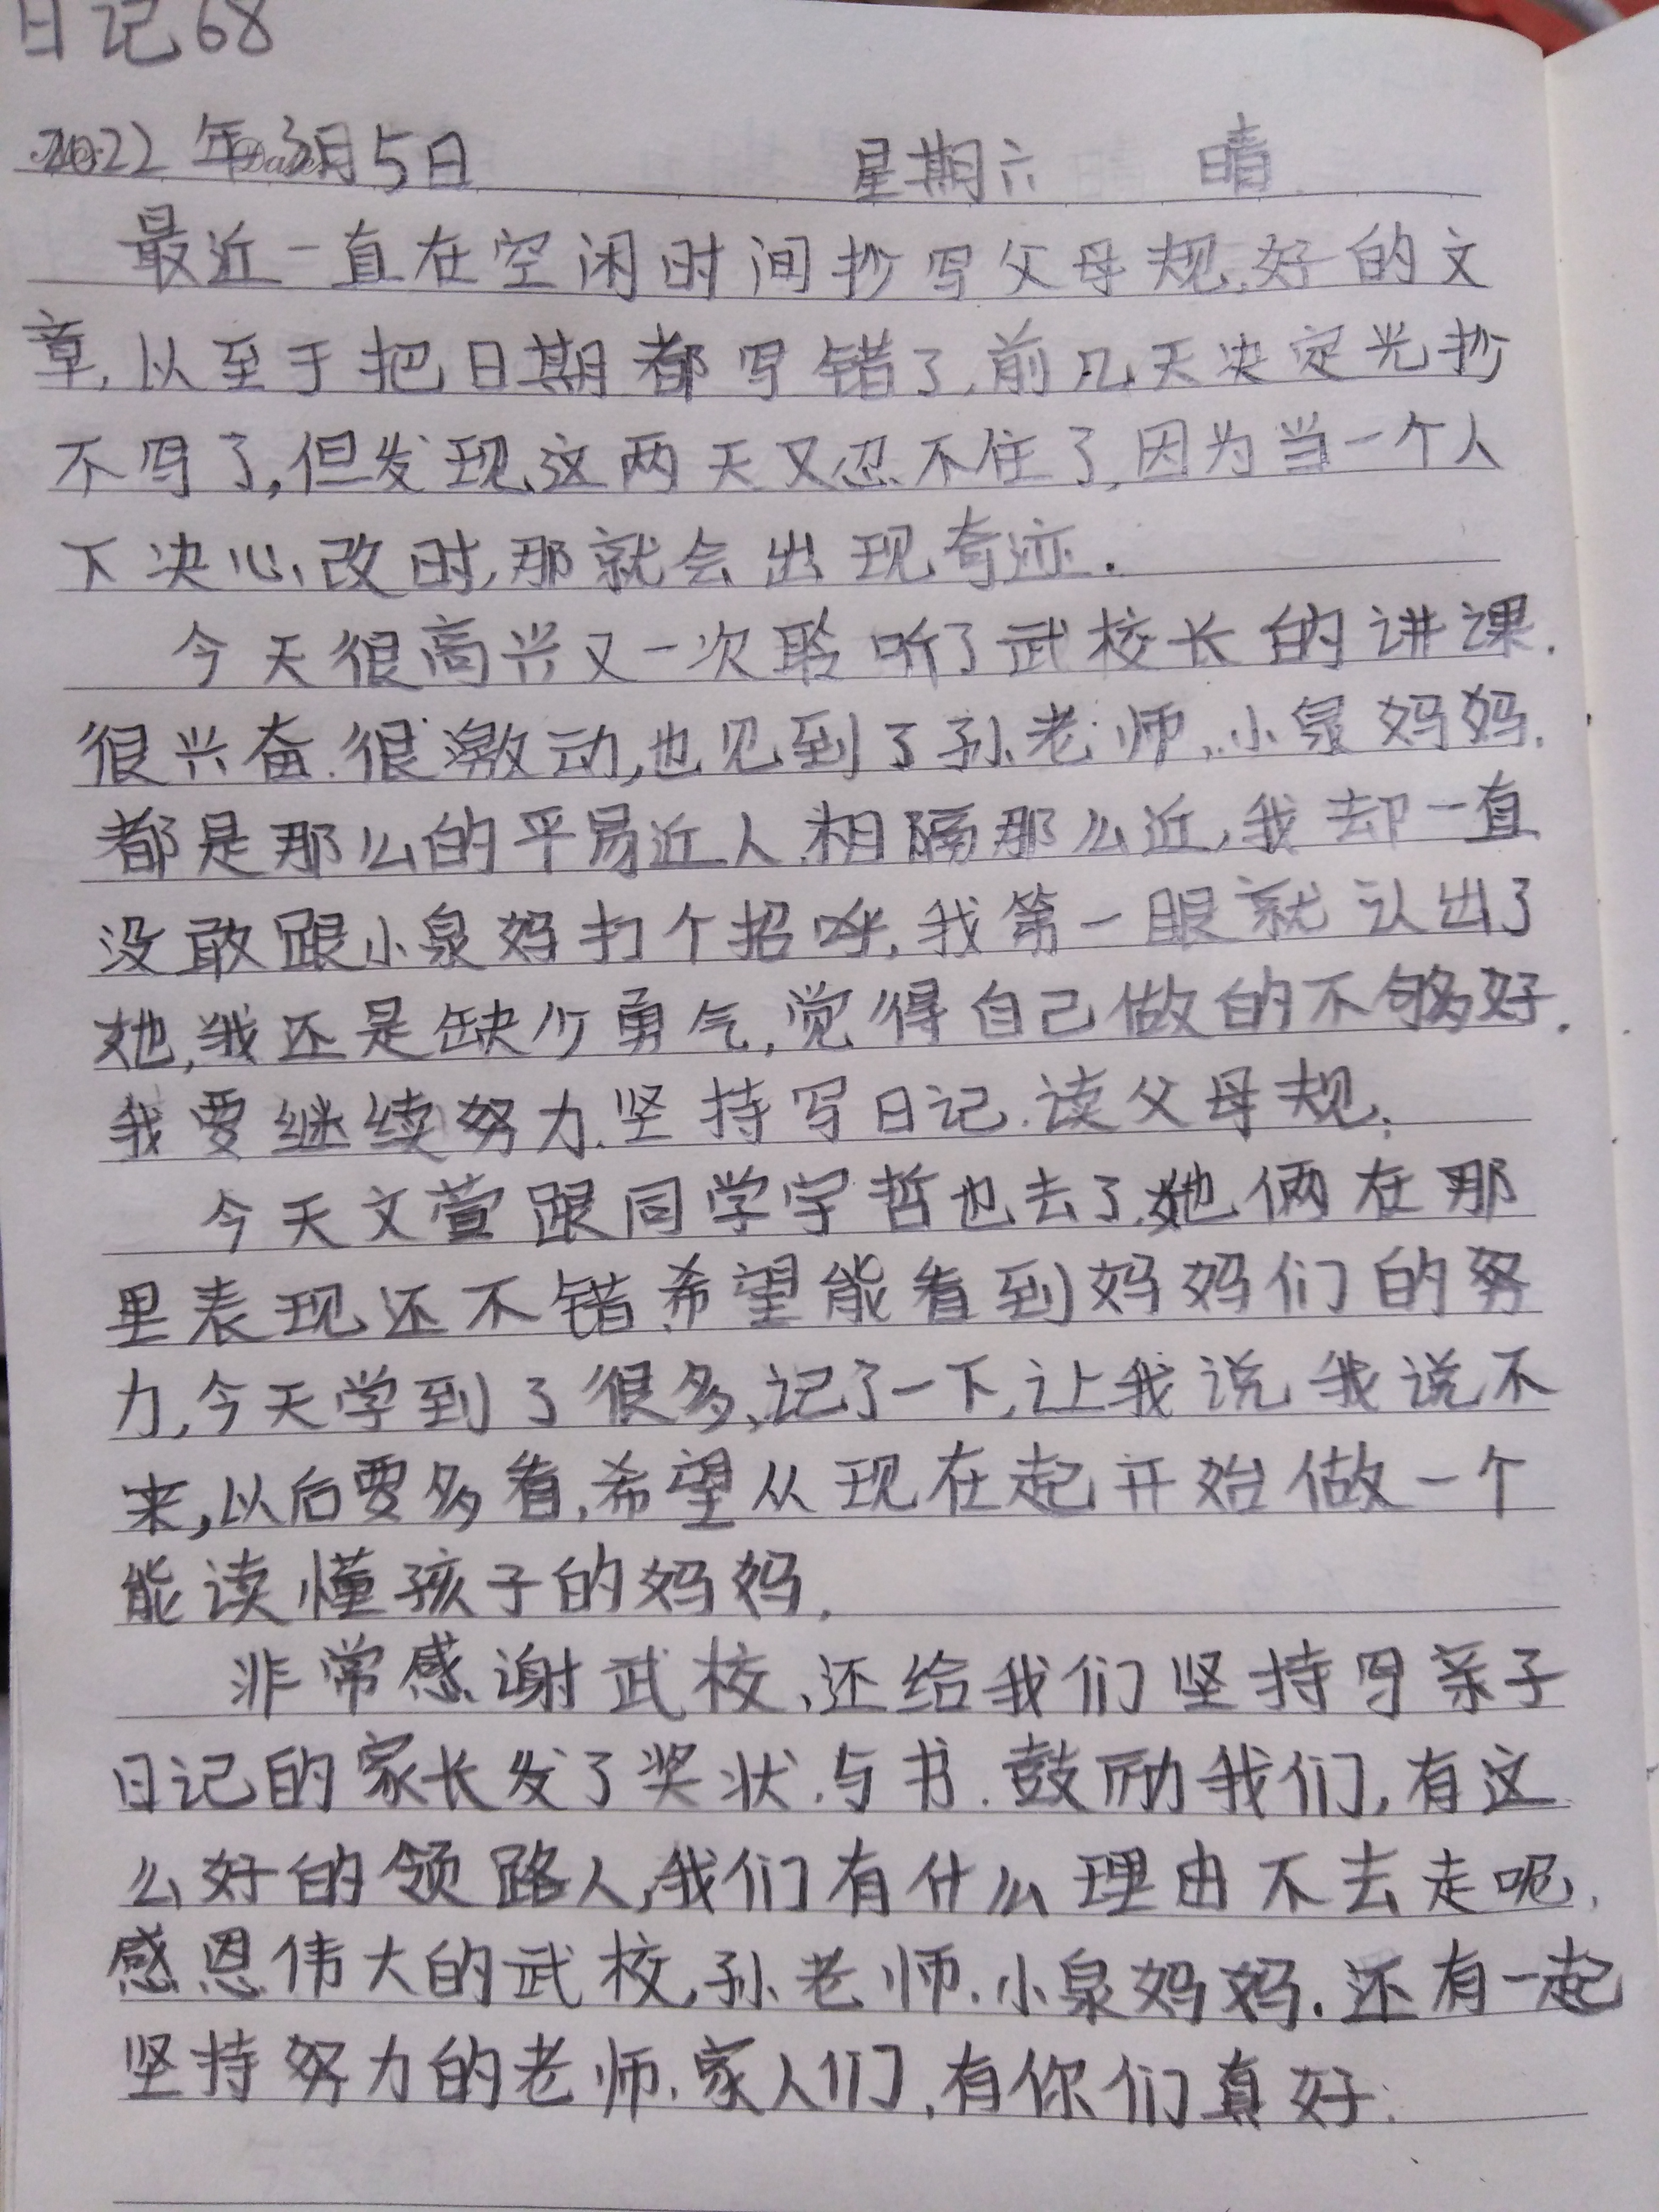 日记68
2022年3月5日 星期六 晴
最近一直在空闲时间抄写父母规.好的文
章,以至于把日期都写错了,前几天决定光抄
不写了,但发现这两天又忍不住了,因为当一个人
下决心改时,那就会出现奇迹.
今天很高兴又一次聆听了武校长的讲课.
很兴奋.很激动,也见到了孙老师,小泉妈妈.
都是那么的平易近人.相隔那么近,我却一直
没敢跟小泉妈打个招呼,我第一眼就认出了
她,我还是缺少勇气,觉得自己做的不够好.
我要继续努力.坚持写日记.读父母规.
今天文萱跟同学宇哲也去了,她俩在那
里表现还不错,希望能看到妈妈们的努
力,今天学到了很多,记了一下,让我说我说不
来,以后要多看,希望从现在起开始做一个
能读懂孩子的妈妈.
非常感谢武校,还给我们坚持写亲子
日记的家长发了奖状.与书.鼓励我们,有这
么好的领路人,我们有什么理由不去走呢,
感恩伟大的武校,孙老师.小泉妈妈.还有一起
坚持努力的老师.家人们,有你们真好.